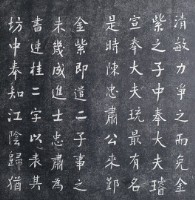 淯敏力爭之而免
紫之子中奉大夫璿
宣奉大夫琉最有名
是時陳忠肅公來鄞
金紫即遣二子事之
未幾咸進士忠肅為
書連桂二字以表其
坊中奉知江陰歸猶